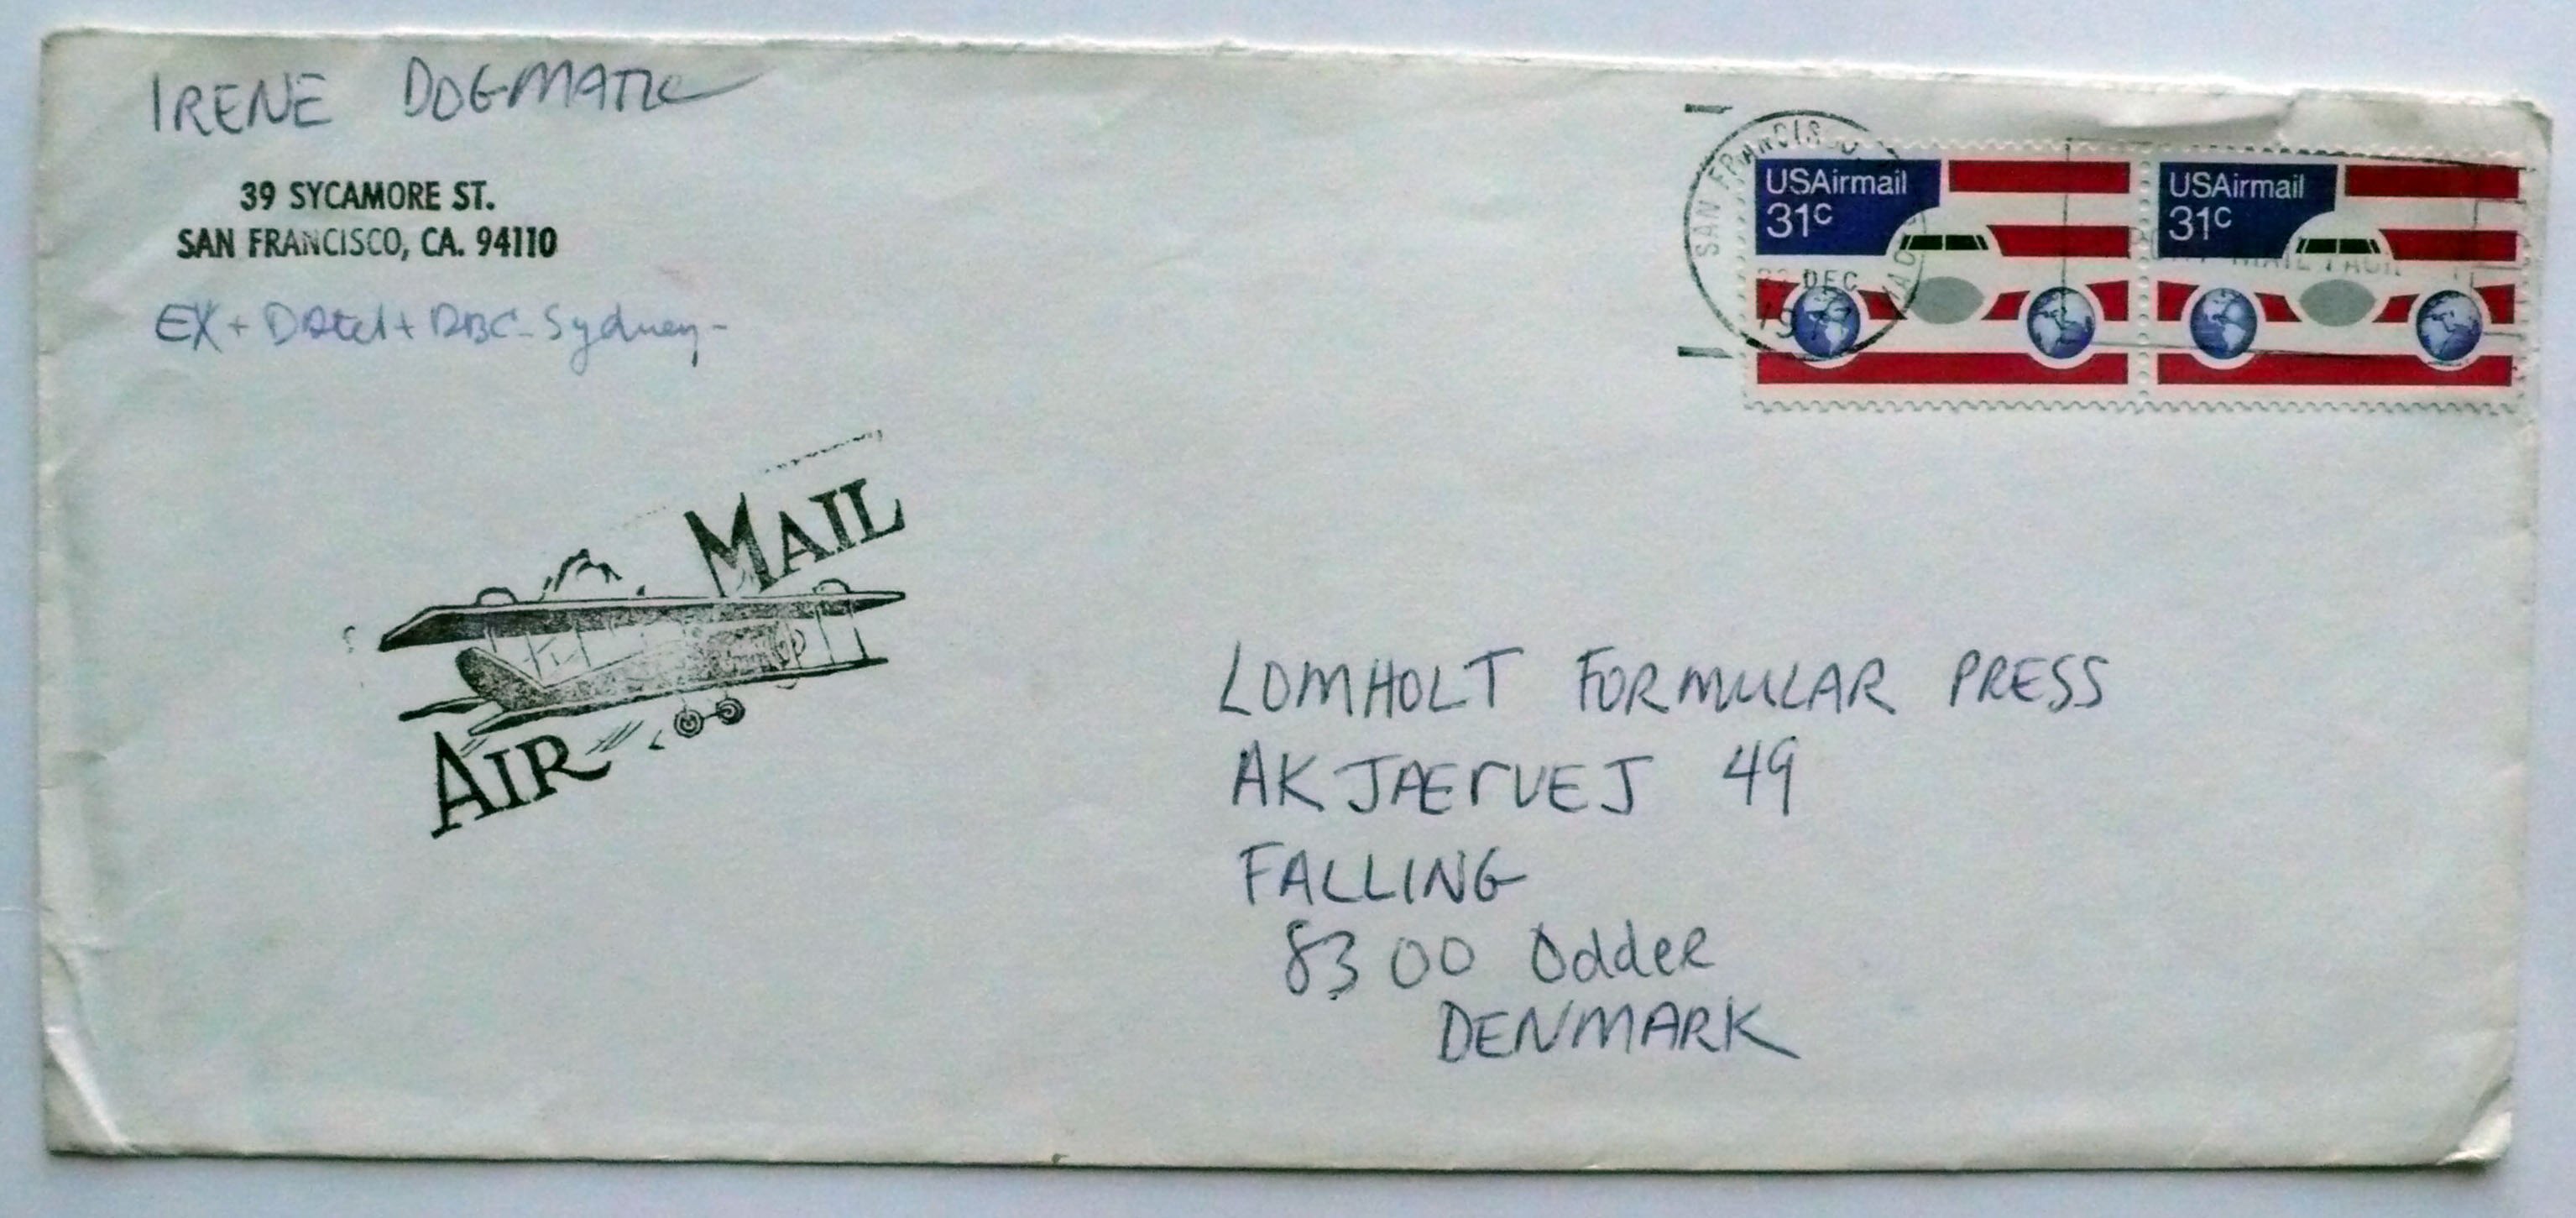 IRENE DOGMATIC
39 SYCAMORE ST.
SAN FRANCISCO, CA. 94110
EX + Sydney -
SAN FRANCISCO
DEC
USAirmail
31c
USAirmail
31c
MAIL
AIR
LOMHOLT FORMULAR PRESS
AKJAErVEJ 49
FALLING
8300 Odder
DENMARK